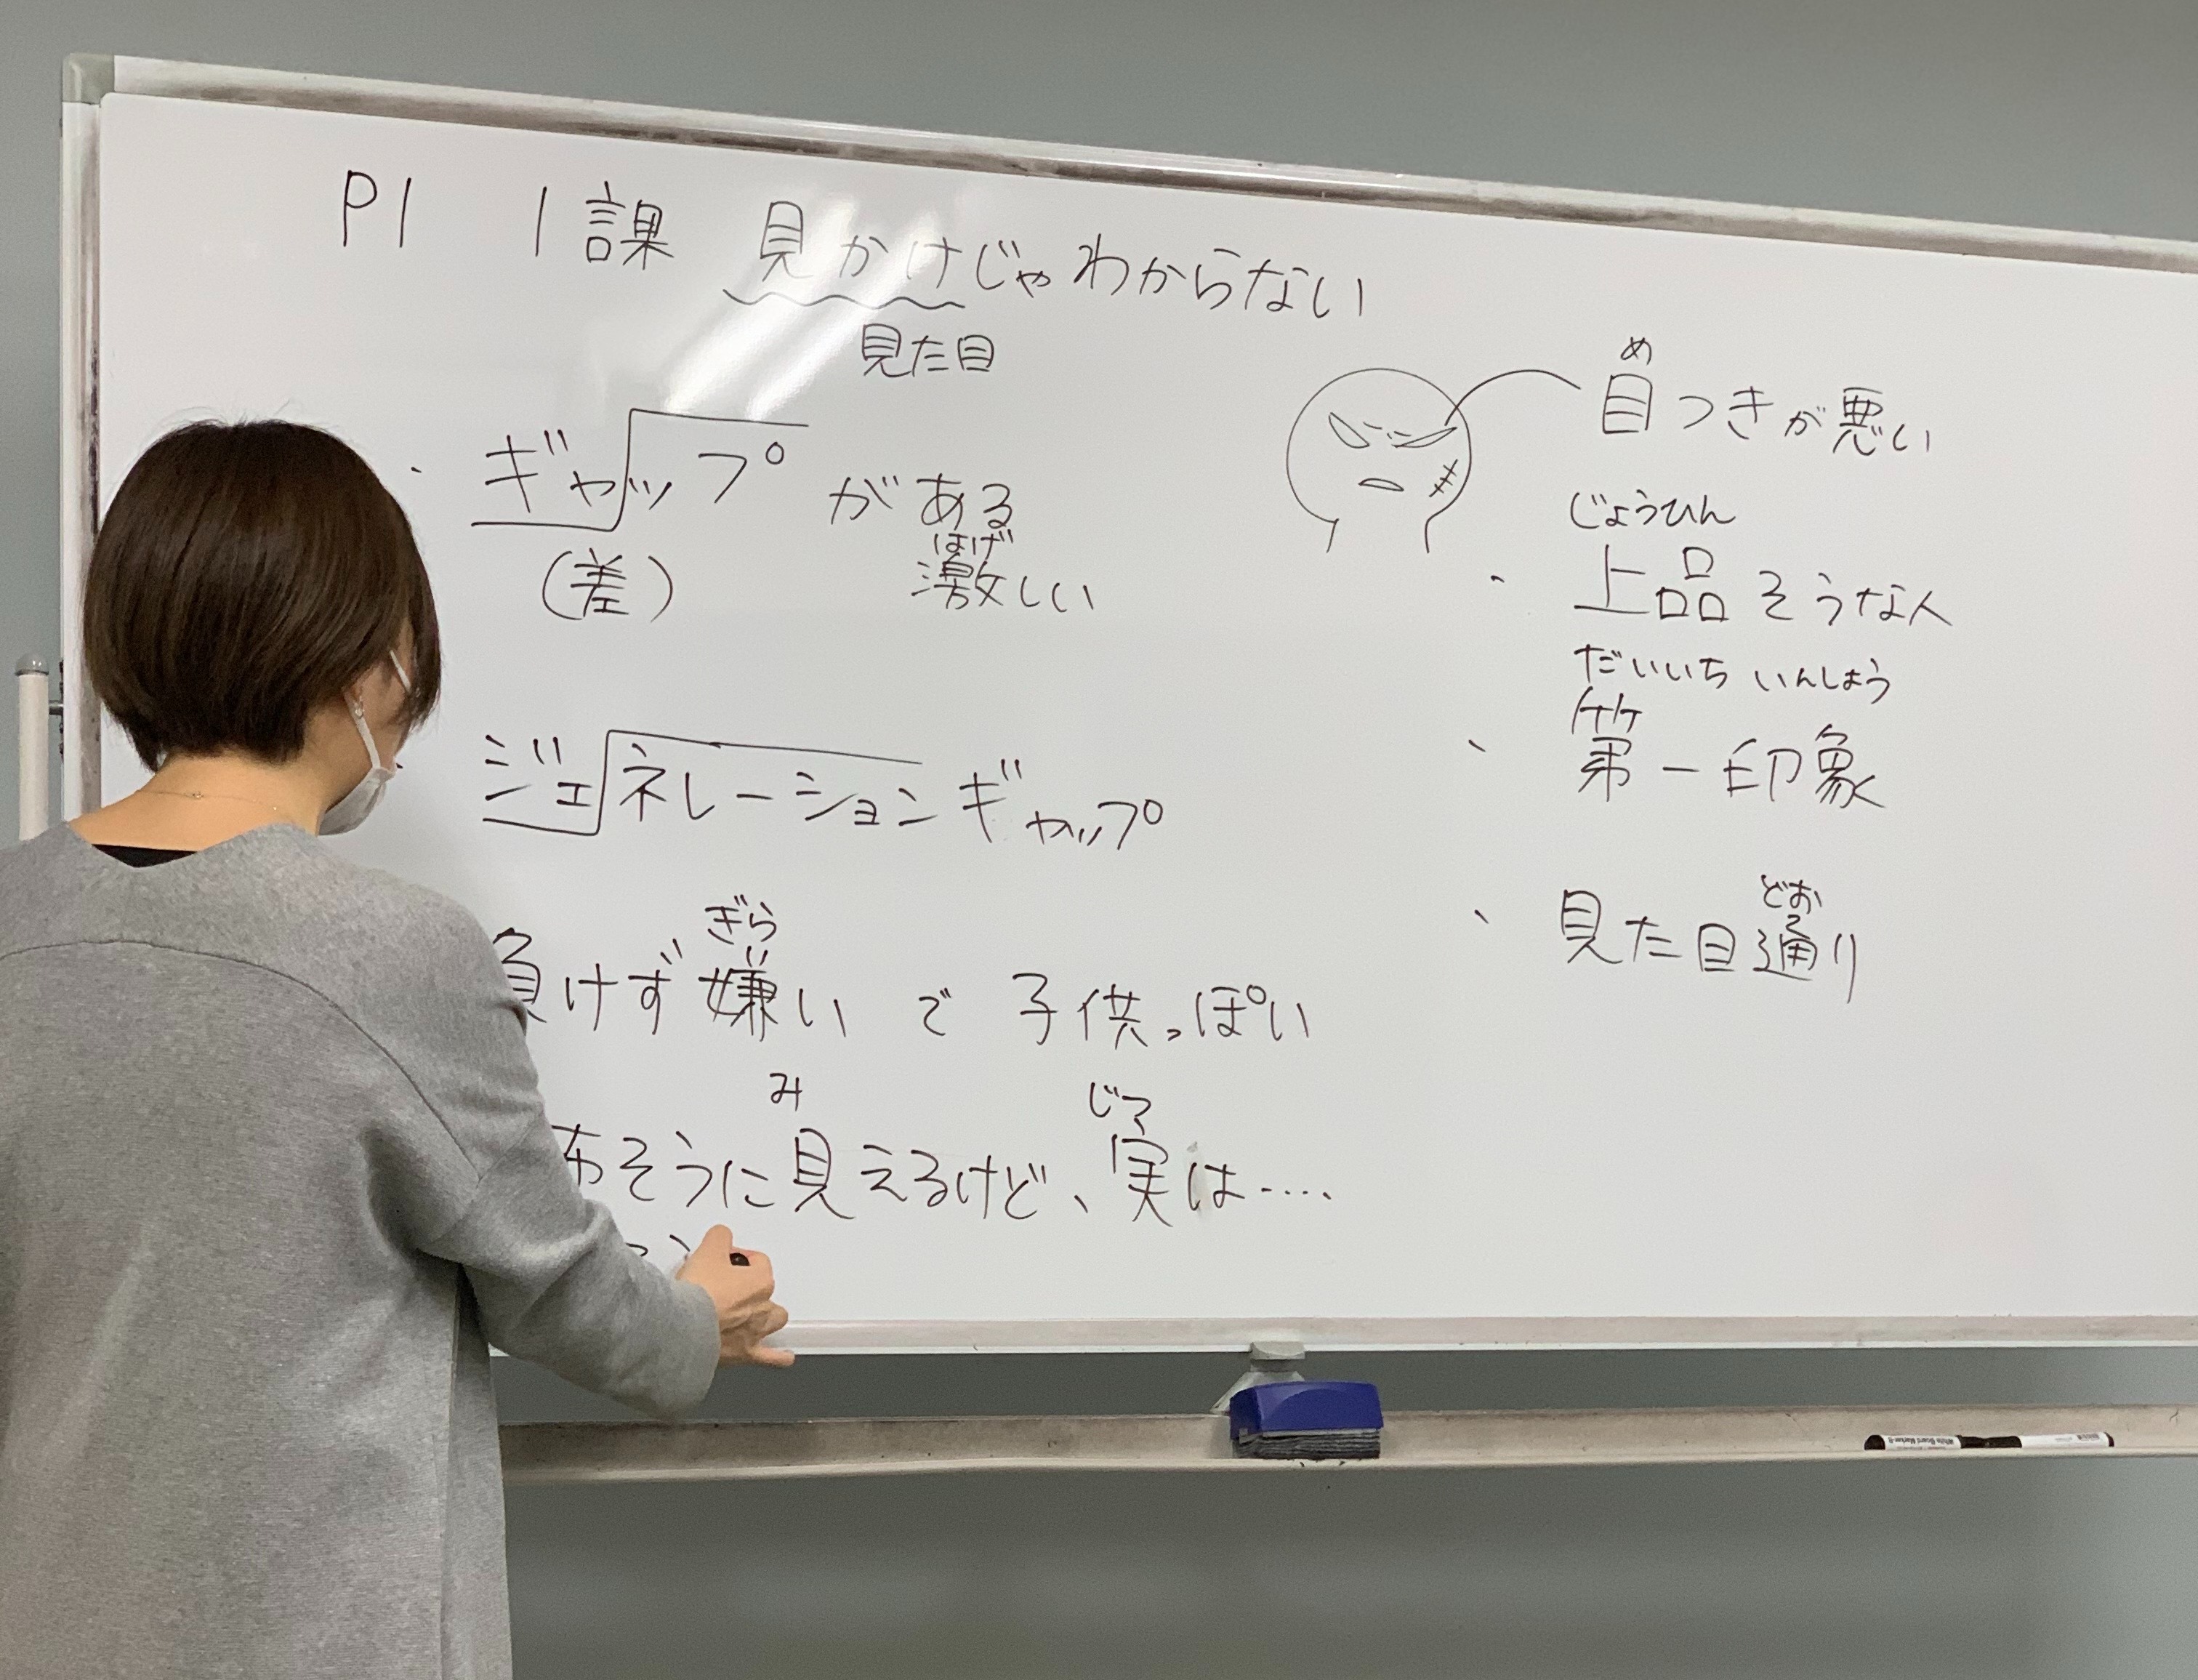 P1 1課 見かけじゃわからない
見た目
・ ギャップがある
(差) 激しい
はげ
ジェネレーションギャップ
ぎら
負けず嫌いで 子供っぽい
み じつ
そうに見えるけど、実は‥‥
め
目つきが悪い
じょうひん
・ 上品そうな人
だいいち いんしょう
・ 第一印象
どお
・ 見た目通り
White Board Marker